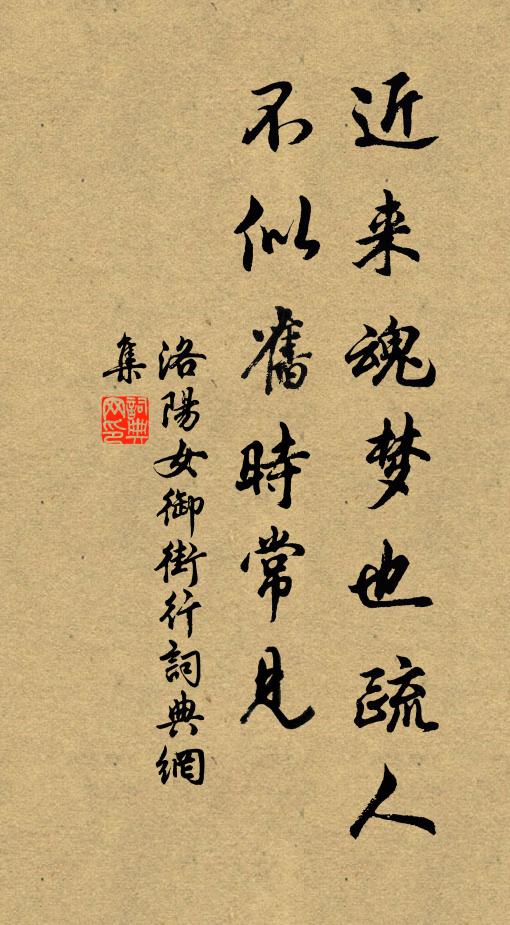 近来魂梦也疏人
不似舊時常見
洛陽女御街行詞典網
集
詞典
网印